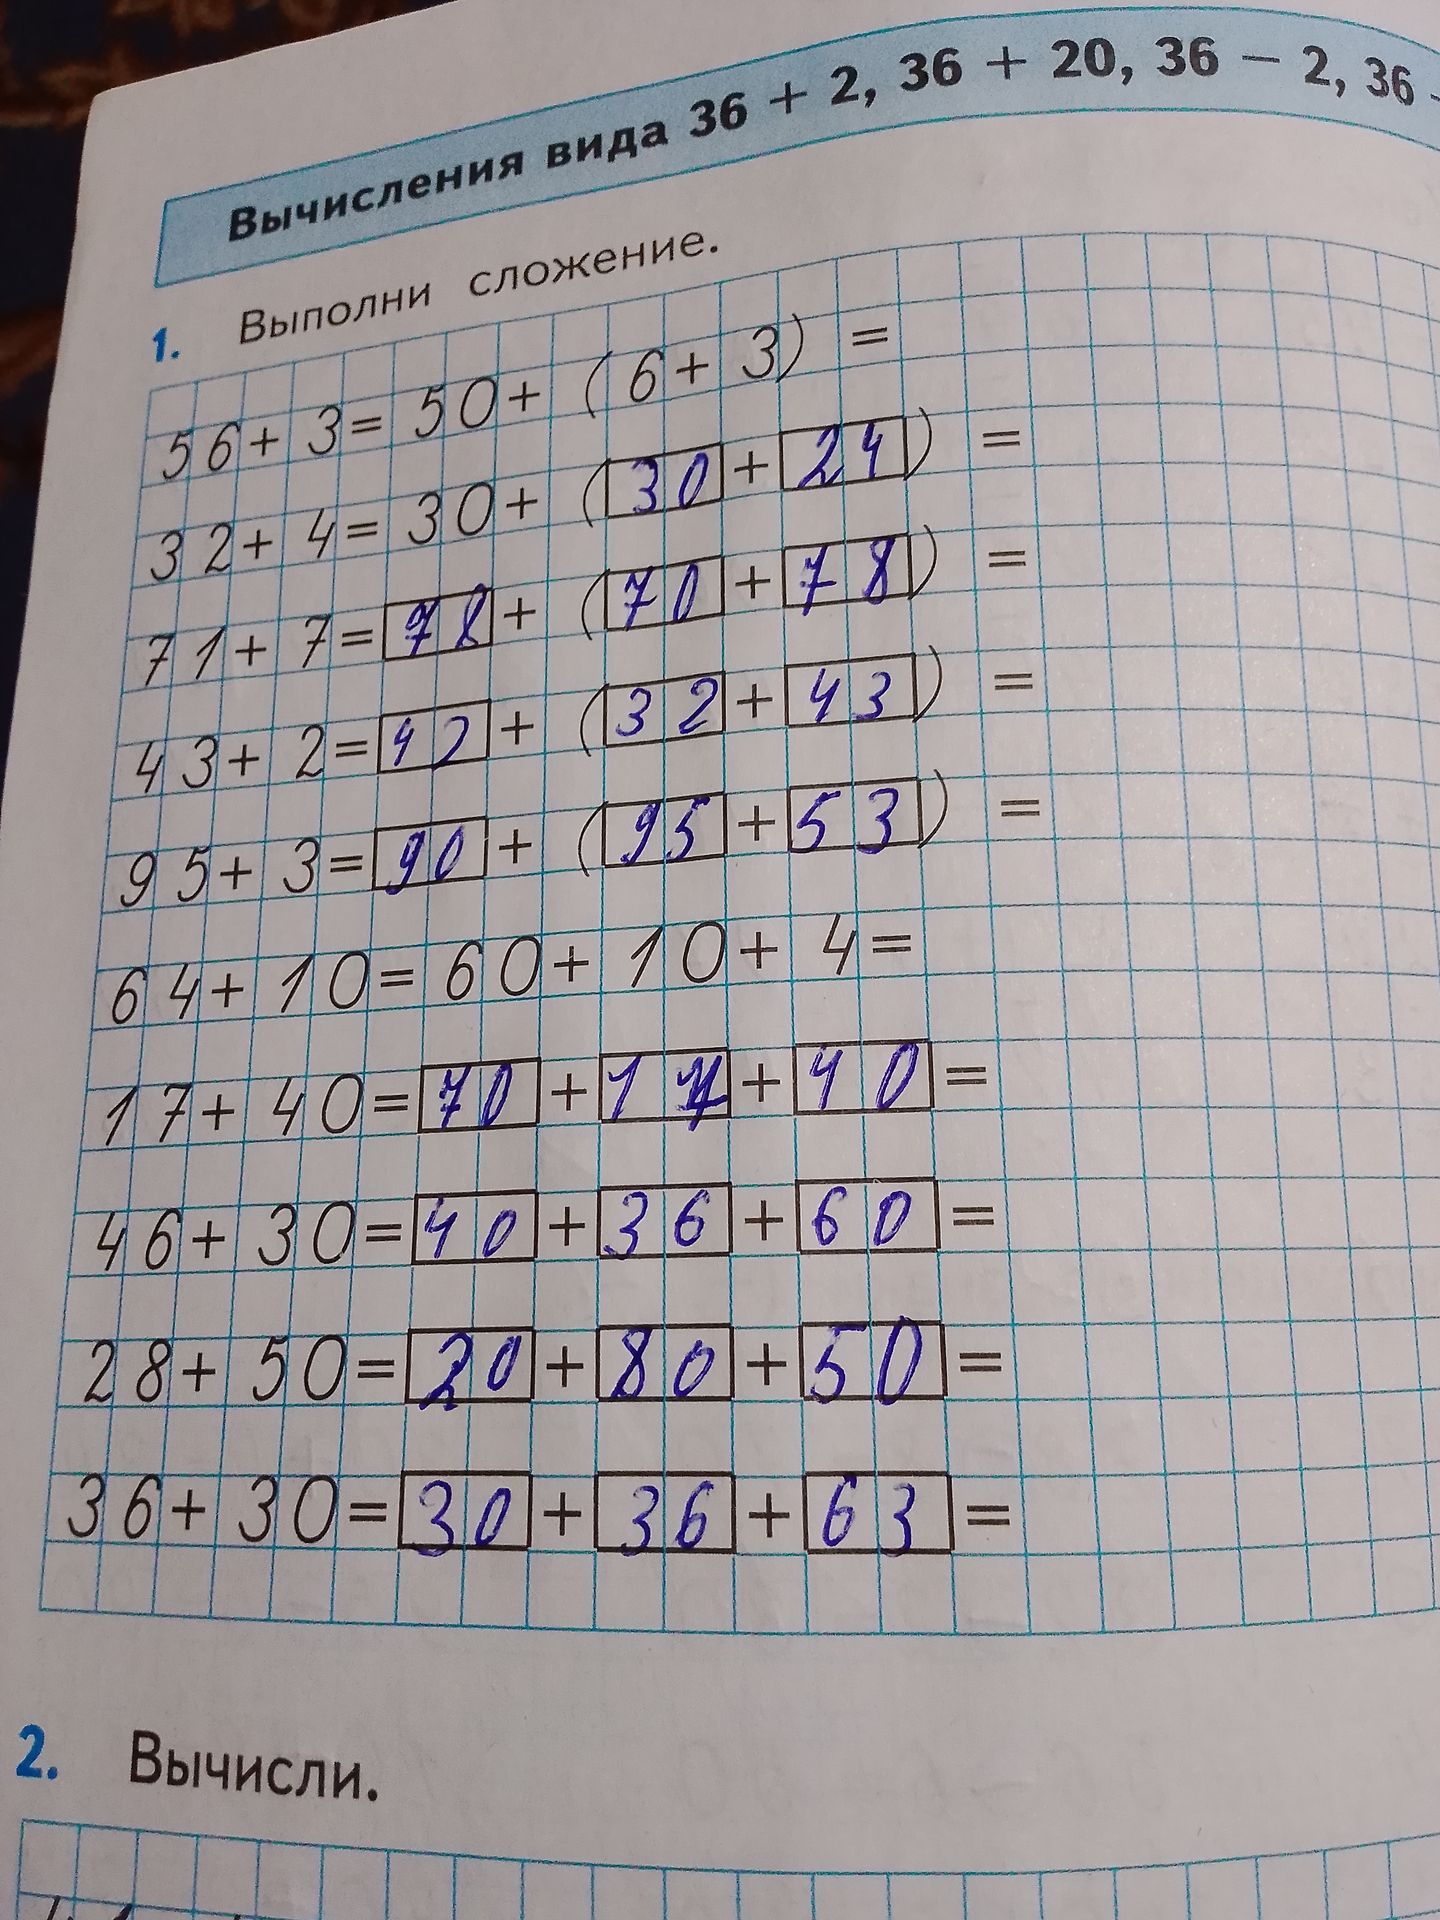 Вычисления вида 36 + 2, 36 + 20, 36 − 2, 36
1. Выполни сложение.
56+ 3= 50+ (6+ 3) =
32+ 4= 30+ (30 + 24) =
71+ 7= 78 + (70 + 78) =
43+ 2= 42 + (32 + 43) =
95+ 3= 90 + (95 + 53) =
64+ 10= 60+ 10+ 4=
17+ 40= 70 + 17 + 40 =
46+ 30= 40 + 36 + 60 =
28+ 50= 20 + 80 + 50 =
36+ 30= 30 + 36 + 63 =
2. Вычисли.